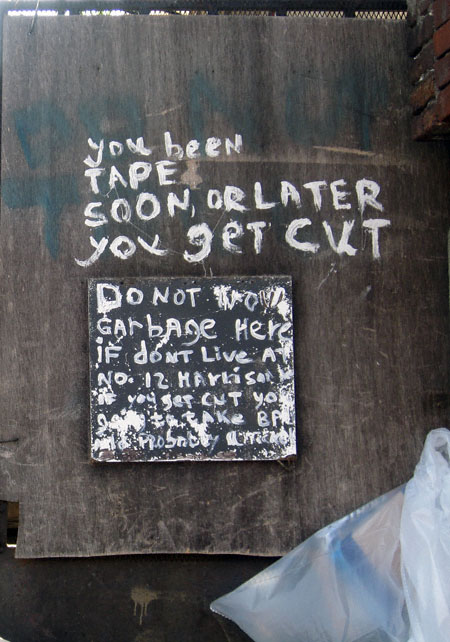 you been
TAPE
SOON, OR LATER
you get CUT
DO NOT
GARbAGE HERE
iF dONT LIVE AT
NO. 12 HARRISON
if you get CUT YO
going to TAKE